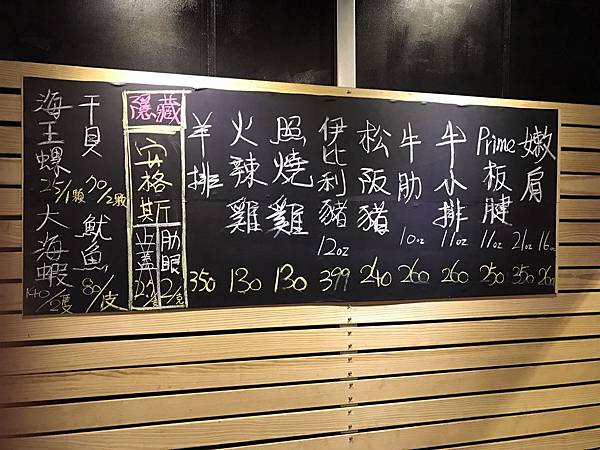 嫩肩 21oz 350 16oz 260
Prime板腱 11oz 250
牛小排 11oz 260
牛肋 10oz 260
松阪豬 240
伊比利豬 12oz 399
照燒雞 130
火辣雞 130
羊排 350
隱藏
安格斯
肋眼
蓋
干貝 70/2顆
魷魚 80/支
海王螺 25/1顆
大海蝦 140/2隻